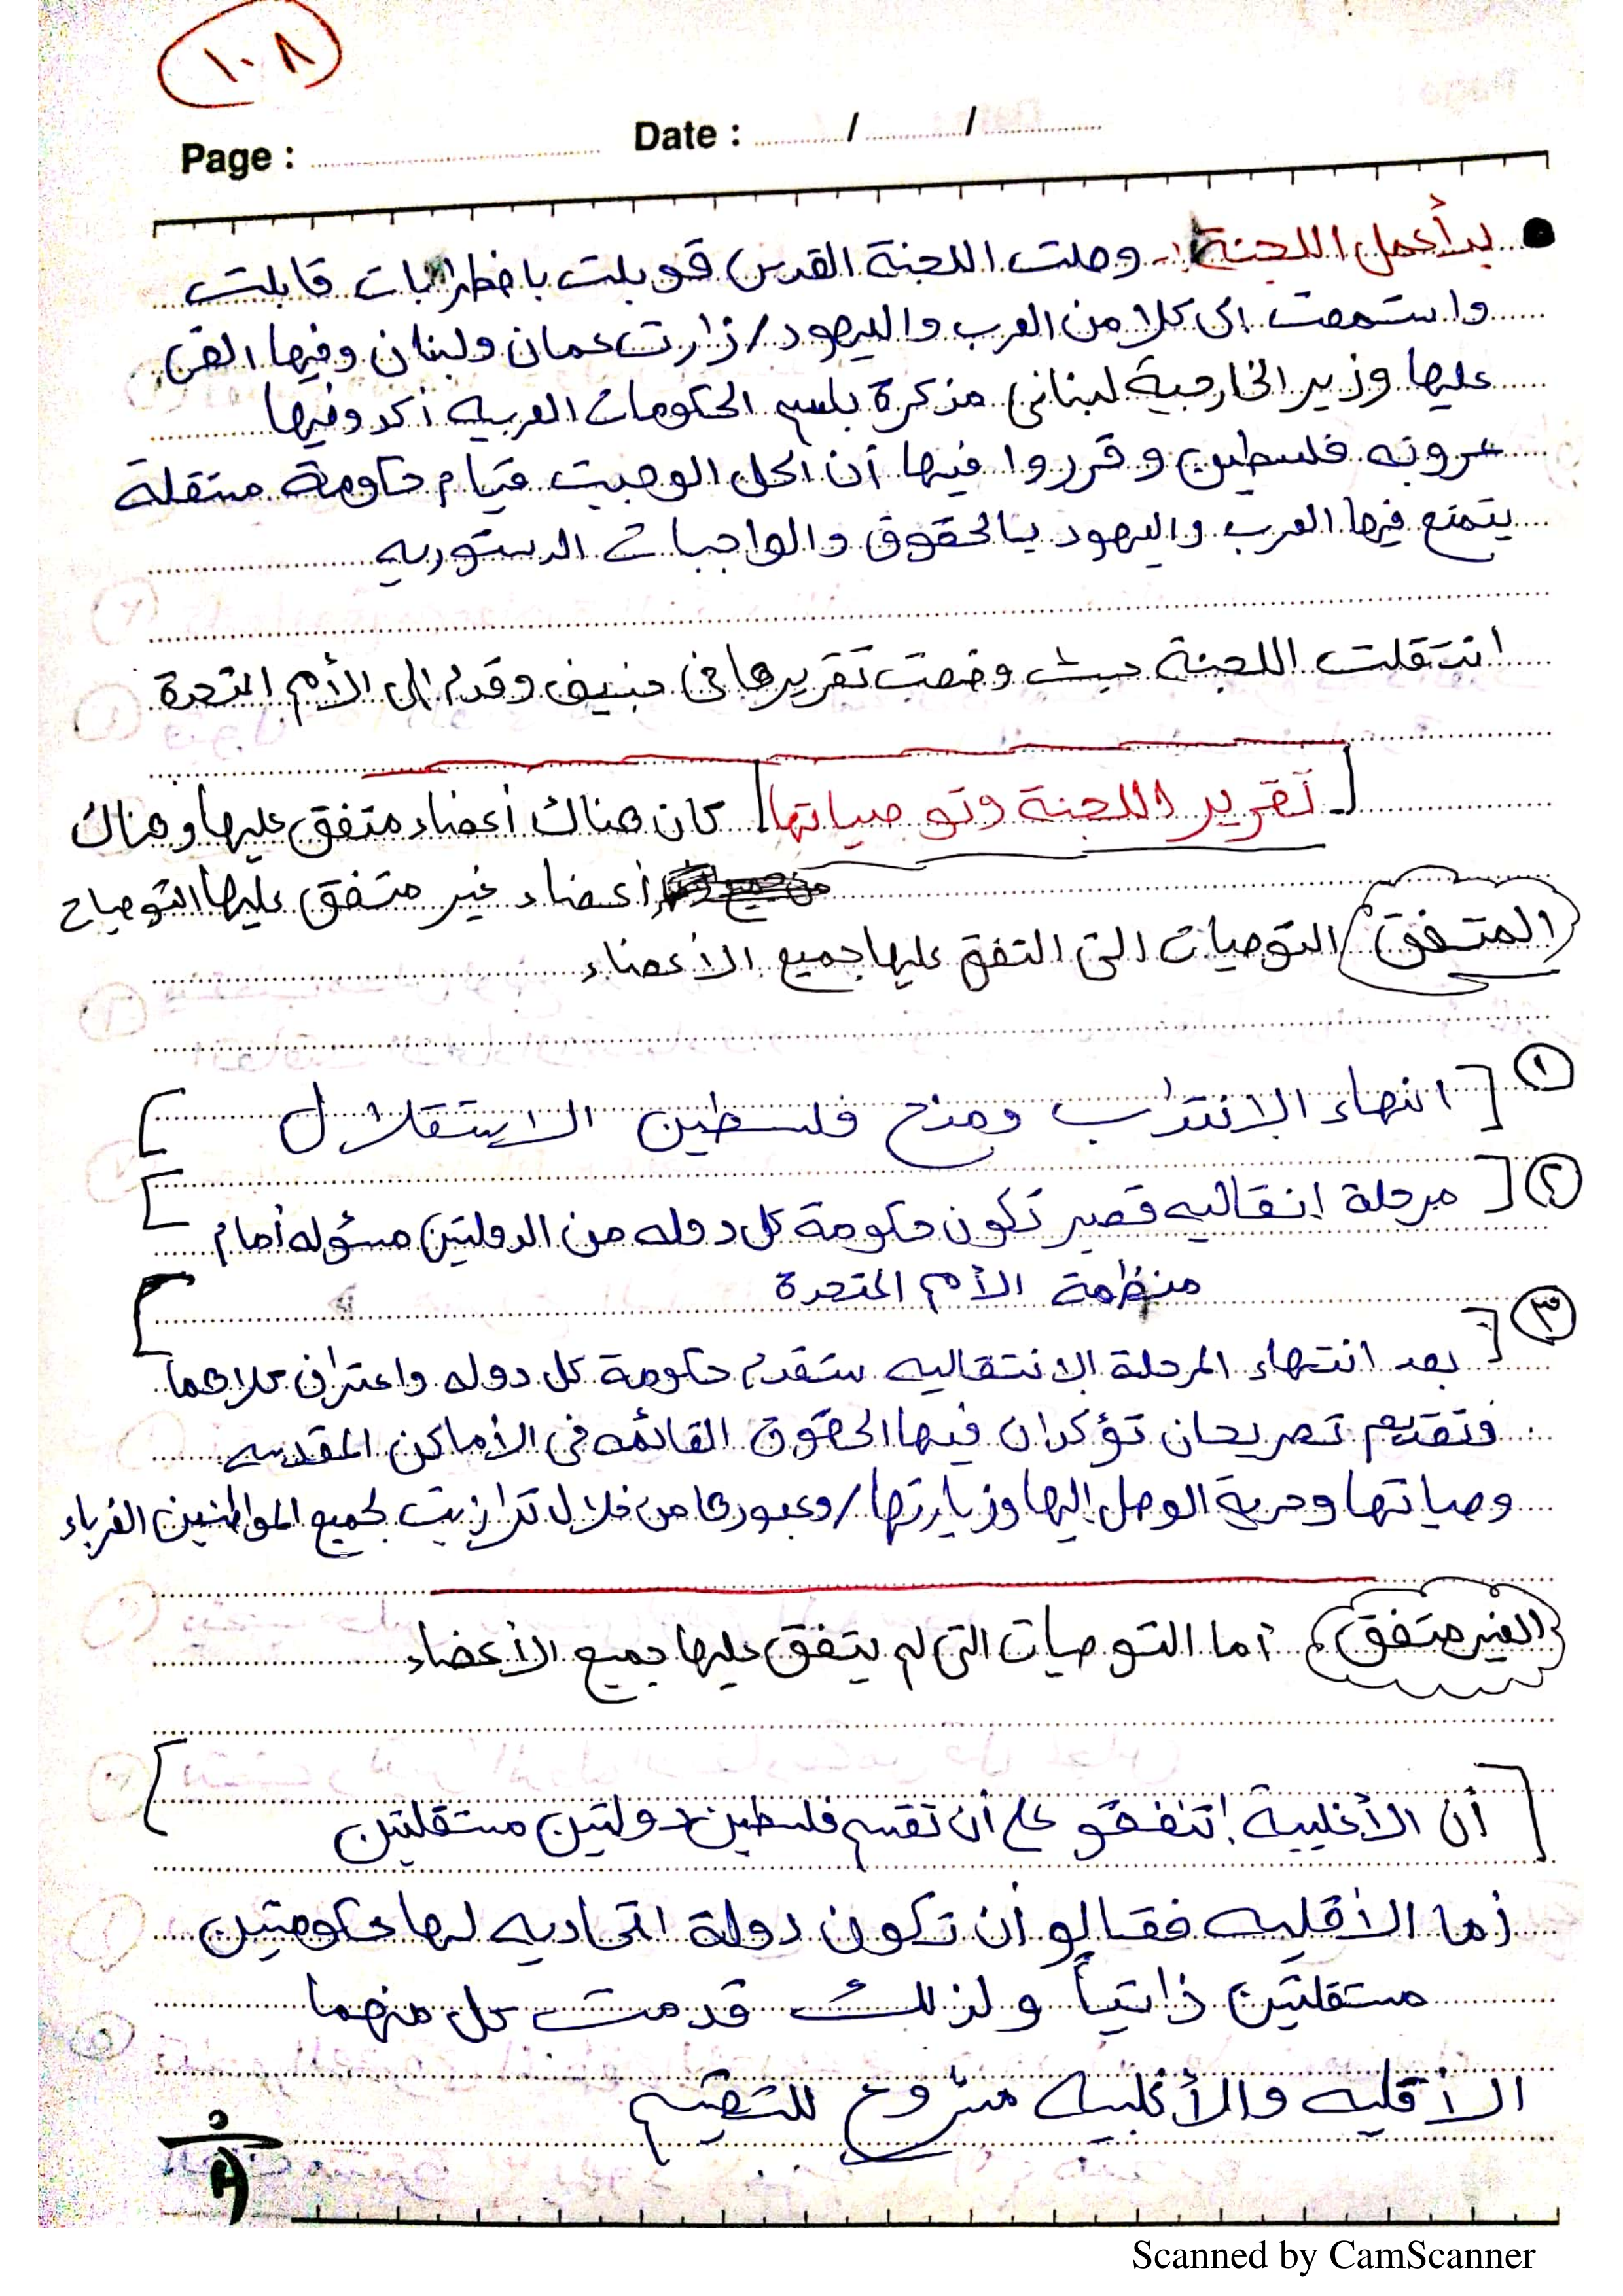 ١٠٨
Page : Date : / /
● بدأ عمل اللجنة :- وصلت اللجنة القدس قوبلت باضطرابات قابلت
واستمعت الى كلا من العرب واليهود / زارت عمان ولبنان وفيها القى
عليها وزير الخارجية لبنانى مذكرة باسم الحكومات العربيه أكدو فيها
عروبه فلسطين وقرروا فيها أن الحل الوحيت قيام حكومة متقلة
يتمتع فيها العرب واليهود بالحقوق والواجبات الدستوريه
انتقلت اللجنة حيث وضعت تقريرها فى جنيف وقدم الى الأمم المتحدة
[تقرير اللجنة وتوصياتها] كان هناك أعضاء متفق عليها وهناك
أعضاء غير متفق عليها التوصيات
المتفق التوصيات التى التفق عليها جميع الأعضاء
① [انهاء الإنتداب ومنح فلسطين الاستقلال]
② [مرحلة انقاليه قصير تكون حكومة كل دوله من الدولتين مسؤله أمام
منظمة الأمم المتحدة]
③ [بعد انتهاء المرحلة الإنتقاليه ستقدم حكومة كل دوله واعتراف كلاهما
فتقديم تصريحان تؤكدان فيها الحقوق القائمه فى الأماكن المقدسه
وصياتها وحرية الوصل إليها وزيارتها / وعبورها من خلال ترانزيت لجميع المواطنين الغرباء
الغير متفق أما التوصيات التى لم يتفق عليها جميع الأعضاء
[أن الأغلبية إتفقو على أن تقسم فلسطين دولتين مستقلتين]
أما الأقليه فقالو أن تكون دولة اتحاديه لها حكومتين
مستقلتين ذاتياً ولذلك قدمت كل منهما
الأقليه والأغلبيه مشروع للتقسيم
Scanned by CamScanner